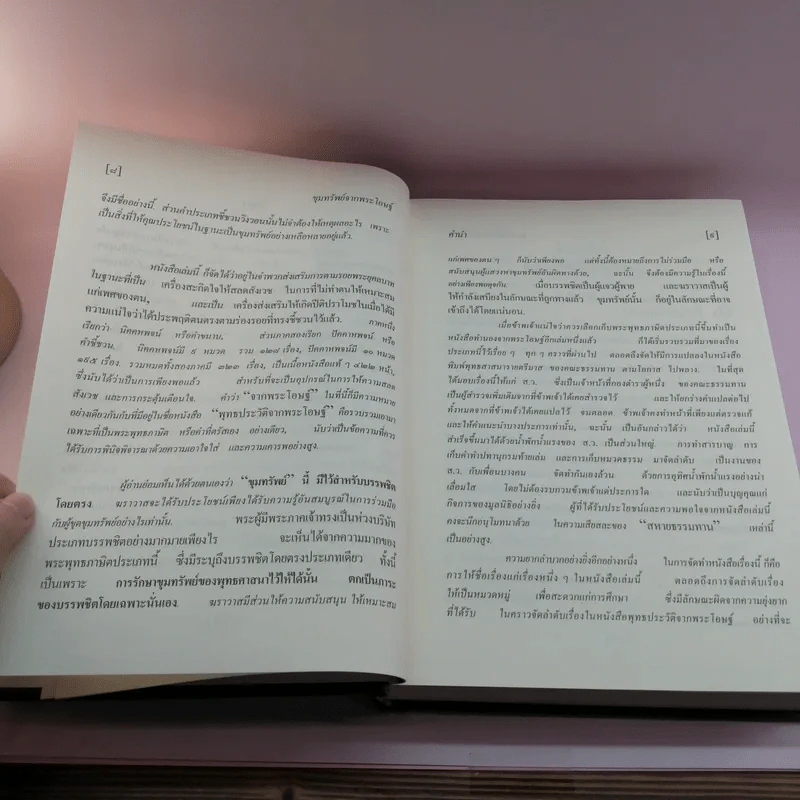 [๘]
ขุมทรัพย์จากพระโอษฐ์
จึงมีชื่ออย่างนี้. ส่วนคำประเภทชี้ชวนวิงวอนนั้นไม่จำต้องให้เหตุผลอะไร เพราะ
เป็นสิ่งที่ให้คุณประโยชน์ในฐานะเป็นขุมทรัพย์อย่างเหลือหลายอยู่แล้ว.
หนังสือเล่มนี้ ก็จัดได้ว่าอยู่ในจำพวกส่งเสริมการตามรอยพระยุคลบาท
ในฐานะที่เป็น เครื่องสะกิดใจให้สลดสังเวช ในการที่ไม่ทำตนให้เหมาะสม
แก่เพศของตน, และเป็น เครื่องส่งเสริมให้เกิดปีติปราโมชในเมื่อได้มี
ความแน่ใจว่าได้ประพฤติตนตรงตามร่องรอยที่ทรงชี้ชวนไว้แล้ว. ภาคหนึ่ง
เรียกว่า นิคคหพจน์ หรือคำขนาบ. ส่วนภาคสองเรียก ปัคคาหพจน์ หรือ
คำชี้ชวน. นิคคหพจน์มี ๙ หมวด รวม ๑๒๘ เรื่อง, ปัคคาหพจน์มี ๑๐ หมวด
๑๙๕ เรื่อง. รวมหมดทั้งสองภาคมี ๓๒๓ เรื่อง, เป็นเนื้อหนังสือแท้ ๆ ๔๒๒ หน้า,
ซึ่งนับได้ว่าเป็นการเพียงพอแล้ว สำหรับที่จะเป็นอุปกรณ์ในการให้ความสลด
สังเวช และการกระตุ้นเตือนใจ. คำว่า “จากพระโอษฐ์” ในที่นี้ก็มีความหมาย
อย่างเดียวกันกับที่มีอยู่ในชื่อหนังสือ “พุทธประวัติจากพระโอษฐ์” คือรวบรวมเอามา
เฉพาะที่เป็นพระพุทธภาษิต หรือคำที่ตรัสเอง อย่างเดียว, นับว่าเป็นข้อความที่ควร
ได้รับการพินิจพิจารณาด้วยความเอาใจใส่ และความเคารพอย่างสูง.
ผู้อ่านย่อมเห็นได้ด้วยตนเองว่า “ขุมทรัพย์” นี้ มีไว้สำหรับบรรพชิต
โดยตรง. ฆราวาสจะได้รับประโยชน์เพียงได้รับความรู้อันสมบูรณ์ในการร่วมมือ
กับผู้ขุดขุมทรัพย์อย่างไรเท่านั้น. พระผู้มีพระภาคเจ้าทรงเป็นห่วงบริษัท
ประเภทบรรพชิตอย่างมากมายเพียงไร จะเห็นได้จากความมากของ
พระพุทธภาษิตประเภทนี้ ซึ่งมีระบุถึงบรรพชิตโดยตรงประเภทเดียว ทั้งนี้
เป็นเพราะ การรักษาขุมทรัพย์ของพุทธศาสนาไว้ให้ได้นั้น ตกเป็นภาระ
ของบรรพชิตโดยเฉพาะนั่นเอง. ฆราวาสมีส่วนให้ความสนับสนุน ให้เหมาะสม
คำนำ
[๙]
แก่เพศของตน ๆ ก็นับว่าเพียงพอ แต่ทั้งนี้ต้องหมายถึงการไม่ร่วมมือ หรือ
สนับสนุนผู้แสวงหาขุมทรัพย์อันผิดทางด้วย, ฉะนั้น จึงต้องมีความรู้ในเรื่องนี้
อย่างเพียงพอดุจกัน. เมื่อบรรพชิตเป็นผู้แจวผู้พาย และฆราวาสเป็นผู้
ให้กำลังเสบียงในลักษณะที่ถูกทางแล้ว ขุมทรัพย์นั้น ก็อยู่ในลักษณะที่อาจ
เข้าถึงได้โดยแน่นอน.
เมื่อข้าพเจ้าแน่ใจว่าควรเลือกเก็บพระพุทธภาษิตประเภทนี้ขึ้นทำเป็น
หนังสือทำนองจากพระโอษฐ์อีกเล่มหนึ่งแล้ว ก็ได้เริ่มรวบรวมที่มาของเรื่อง
ประเภทนี้ไว้เรื่อย ๆ ทุก ๆ คราวที่ผ่านไป ตลอดถึงจัดให้มีการแปลลงในหนังสือ
พิมพ์พุทธสาสนารายตรีมาส ของคณะธรรมทาน ตามโอกาส ไปพลาง. ในที่สุด
ได้มอบเรื่องนี้ให้แก่ ส.ว. ซึ่งเป็นเจ้าหน้าที่กองตำราผู้หนึ่ง ของคณะธรรมทาน
เป็นผู้สำรวจเพิ่มเติมจากที่ข้าพเจ้าได้เคยสำรวจไว้ และให้ยกร่างคำแปลต่อไป
ทั้งหมดจากที่ข้าพเจ้าได้เคยแปลไว้ จนตลอด. ข้าพเจ้าคงทำหน้าที่เพียงแต่ตรวจแก้
และให้คำแนะนำบางประการเท่านั้น, ฉะนั้น เป็นอันกล่าวได้ว่า หนังสือเล่มนี้
สำเร็จขึ้นมาได้ด้วยน้ำพักน้ำแรงของ ส.ว. เป็นส่วนใหญ่. การทำสารบาญ การ
เก็บคำทำปทานุกรมท้ายเล่ม และการเก็บหมวดธรรม มาจัดลำดับ เป็นงานของ
ส.ว. กับเพื่อนบางคน จัดทำกันเองล้วน ด้วยการอุทิศน้ำพักน้ำแรงอย่างน่า
เลื่อมใส โดยไม่ต้องรบกวนข้าพเจ้าแต่ประการใด และนับว่าเป็นบุญคุณแก่
กิจการของมูลนิธิอย่างยิ่ง ผู้ที่ได้รับประโยชน์และความพอใจจากหนังสือเล่มนี้
คงจะนึกอนุโมทนาด้วย ในความเสียสละของ “สหายธรรมทาน” เหล่านี้
เป็นอย่างสูง.
ความยากลำบากอย่างยิ่งอีกอย่างหนึ่ง ในการจัดทำหนังสือเรื่องนี้ ก็คือ
การให้ชื่อเรื่องแก่เรื่องหนึ่ง ๆ ในหนังสือเล่มนี้ ตลอดถึงการจัดลำดับเรื่อง
ให้เป็นหมวดหมู่ เพื่อสะดวกแก่การศึกษา ซึ่งมีลักษณะผิดจากความยุ่งยาก
ที่ได้รับ ในคราวจัดลำดับเรื่องในหนังสือพุทธประวัติจากพระโอษฐ์ อย่างที่จะ